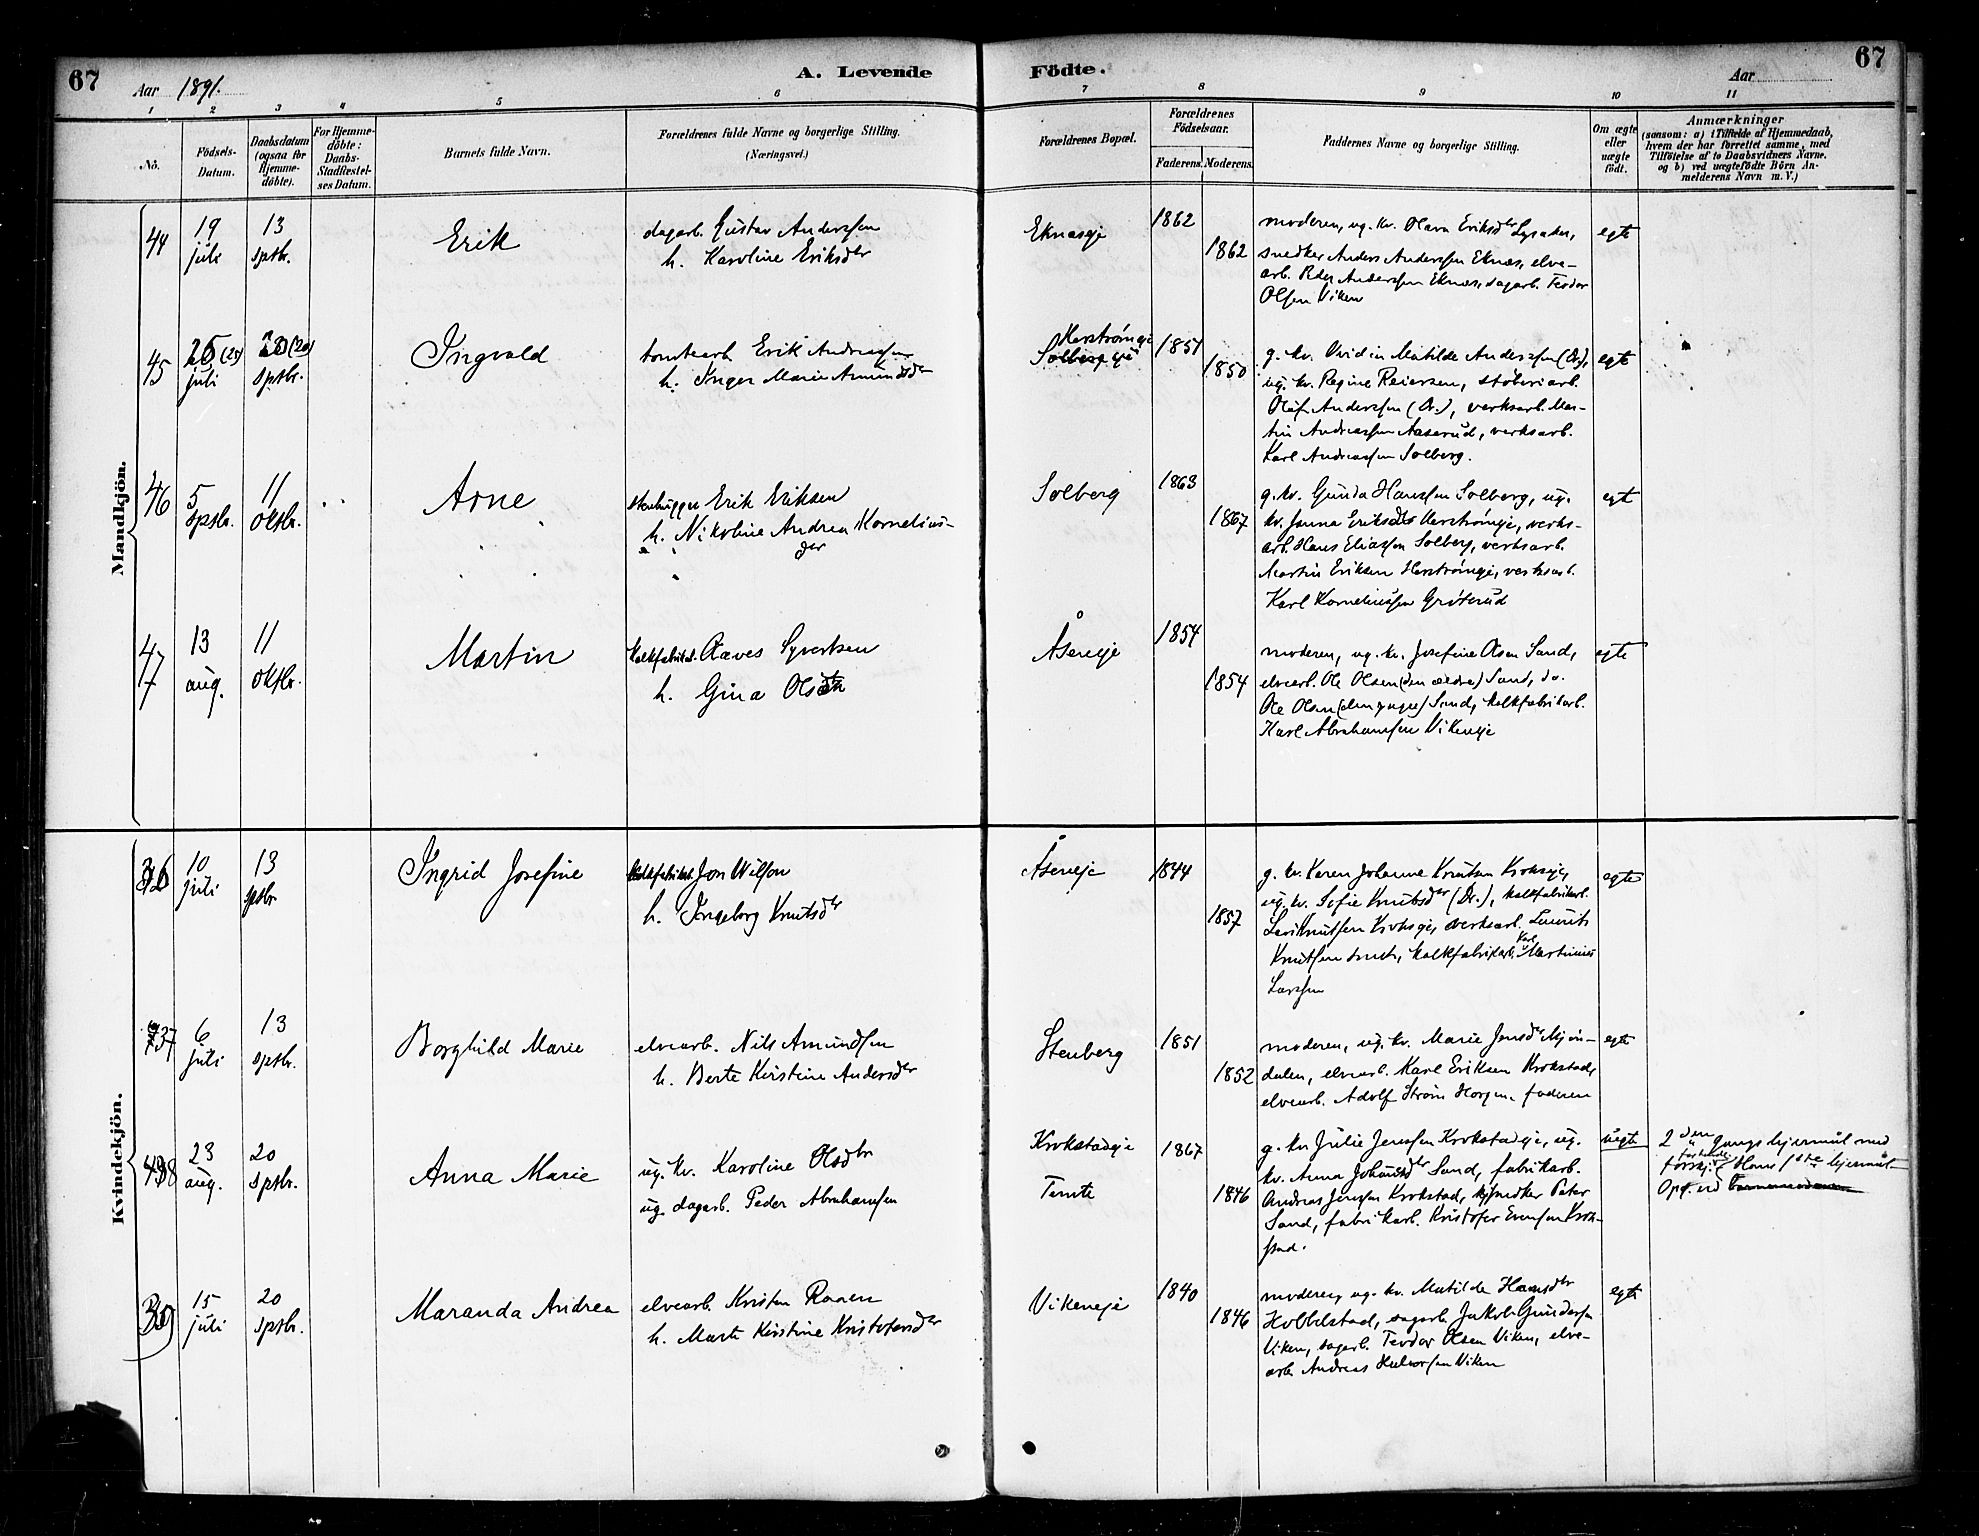 67
Aar 1891.
A. Levende
Födte.
Aar
67
1 2 3 4 5 6 7 8 9 10 11
No.
Födsels-
Datum.
Daabsdatum
(ogsaa for
Hjemme-
döbte).
For Hjemme-
döbte:
Daabs-
Stadfæstel-
ses Datum.
Barnets fulde Navn.
Forældrenes fulde Navne og borgerlige Stilling.
(Næringsvei.)
Forældrenes Bopæl.
Forældrenes
Födselsaar.
Faderens. Moderens.
Faddernes Navne og borgerlige Stilling.
Om ægte
eller
uægte
födt.
Anmærkninger
(saasom: a) i Tilfælde af Hjemmedaab,
hvem der har forrettet samme, med
Tilföielse af to Daabsvidners Navne.
og b) ved uægtefödte Börn An-
melderens Navn m. V.)
Mandkjön.
44
19
juli
13
sptbr.
Erik
dagarb. Gustav Anderssen
h. Karoline Eriksdtr
Eknæseje
1862
1862
moderen, ug. kv. Olava Eriksdtr Lysaker,
snedker Anders Anderssen Eknæs, elve-
arb. Peder Anderssen Eknæs, dagarb. Teodor
Olsen Viken
egte
45
25 (25)
juli
20 (20)
sptbr.
Ingvald
tomtearb Erik Andreassen
h. Inger Marie Amundsdtr
Herstrømeje
Solbergeje
1851
1850
g. kv. Matilde Anderssen (Dr.),
ug. kv. Regine Reiersen, støberiarb.
Olaf Anderssen (Dr.), verksarb. Mar-
tin Andreassen Aaserud, verksarb.
Karl Andreassen Solberg.
egte
46
5
sptbr.
11
oktbr.
Arne
stenhugger Erik Eriksen
h. Nikoline Andrea Kornelius-
dtr
Solberg
1863
1867
g. kv. Gunda Hanssen Solberg, ug.
kv. Janna Eriksdtr Herstrømeje, verks-
arb. Hans Eliassen Solberg, verksarb.
Martin Eriksen Herstrømeje, verksarb.
Karl Korneliussen Grøterud
egte
47
13
aug.
11
oktbr.
Martin
kalkfabrikar. Syvertsen
h. Gina Olsdtr
Åseneje
1854
1854
moderen, ug. kv. Josefine Olsen Sand,
elvearb. Ole Olsen (den ældre) Sand, do.
Ole Olsen (den yngre) Sand, kalkfabrikarb.
Karl Abrahamsen Vikeneje
egte
Kvindekjön.
36
10
juli
13
sptbr
Ingrid Josefine
kalkfabrikar. Jon Nilsson
h. Ingeborg Knutsdtr
Åseneje
1844
1857
g. kv. Karen Johanne Knutsen Krokseje,
ug. kv. Sofie Knutsdtr (Dr.), kalkfabrikarb.
Knutssen Krokseje, verksarb. Lauritz
Knutssen smst, kalkfabrikarb. Karl Martinius
Larssen
egte
37
6
juli
13
sptbr.
Borghild Marie
elvearb. Nils Amundsen
h. Berte Kirstine Andersdtr
Stenberg
1851
1852
moderen, ug. kv. Marie Jensdtr Mjøn-
dalen, elvearb. Karl Eriksen Krokstad,
elvearb. Adolf Strøm Horgen, faderen
egte
38
23
aug.
20
sptbr.
Anna Marie
ug. kv. Karoline Olsdtr
ug. dagarb. Peder Abrahamsen
Krokstadeje
Temte
1867
1846
g. kv Julie Jenssen Krokstadeje, ug.
kv. Anna Johansdtr Sand, fabrikarb.
Andreas Jenssen Krokstad, snedker Peter
Sand, fabrikarb. Kristofer Evensen Krok-
stad.
uegte
2den gangs leiermål med
forskj. Hans 1ste leiermål
Opg. ved barnemoderen
39
15
juli
20
sptbr.
Maranda Andrea
elvearb. Kristen Raaen
h. Marte Kirstine Kristofersdtr
Vikeneje
1840
1846
moderen, ug. kv. Matilde Hansdtr
Hobbelstad, sagarb. Jakob Gundersen
Viken, sagarb. Teodor Olsen Viken, elve-
arb. Andreas Halvorsen Viken
egte